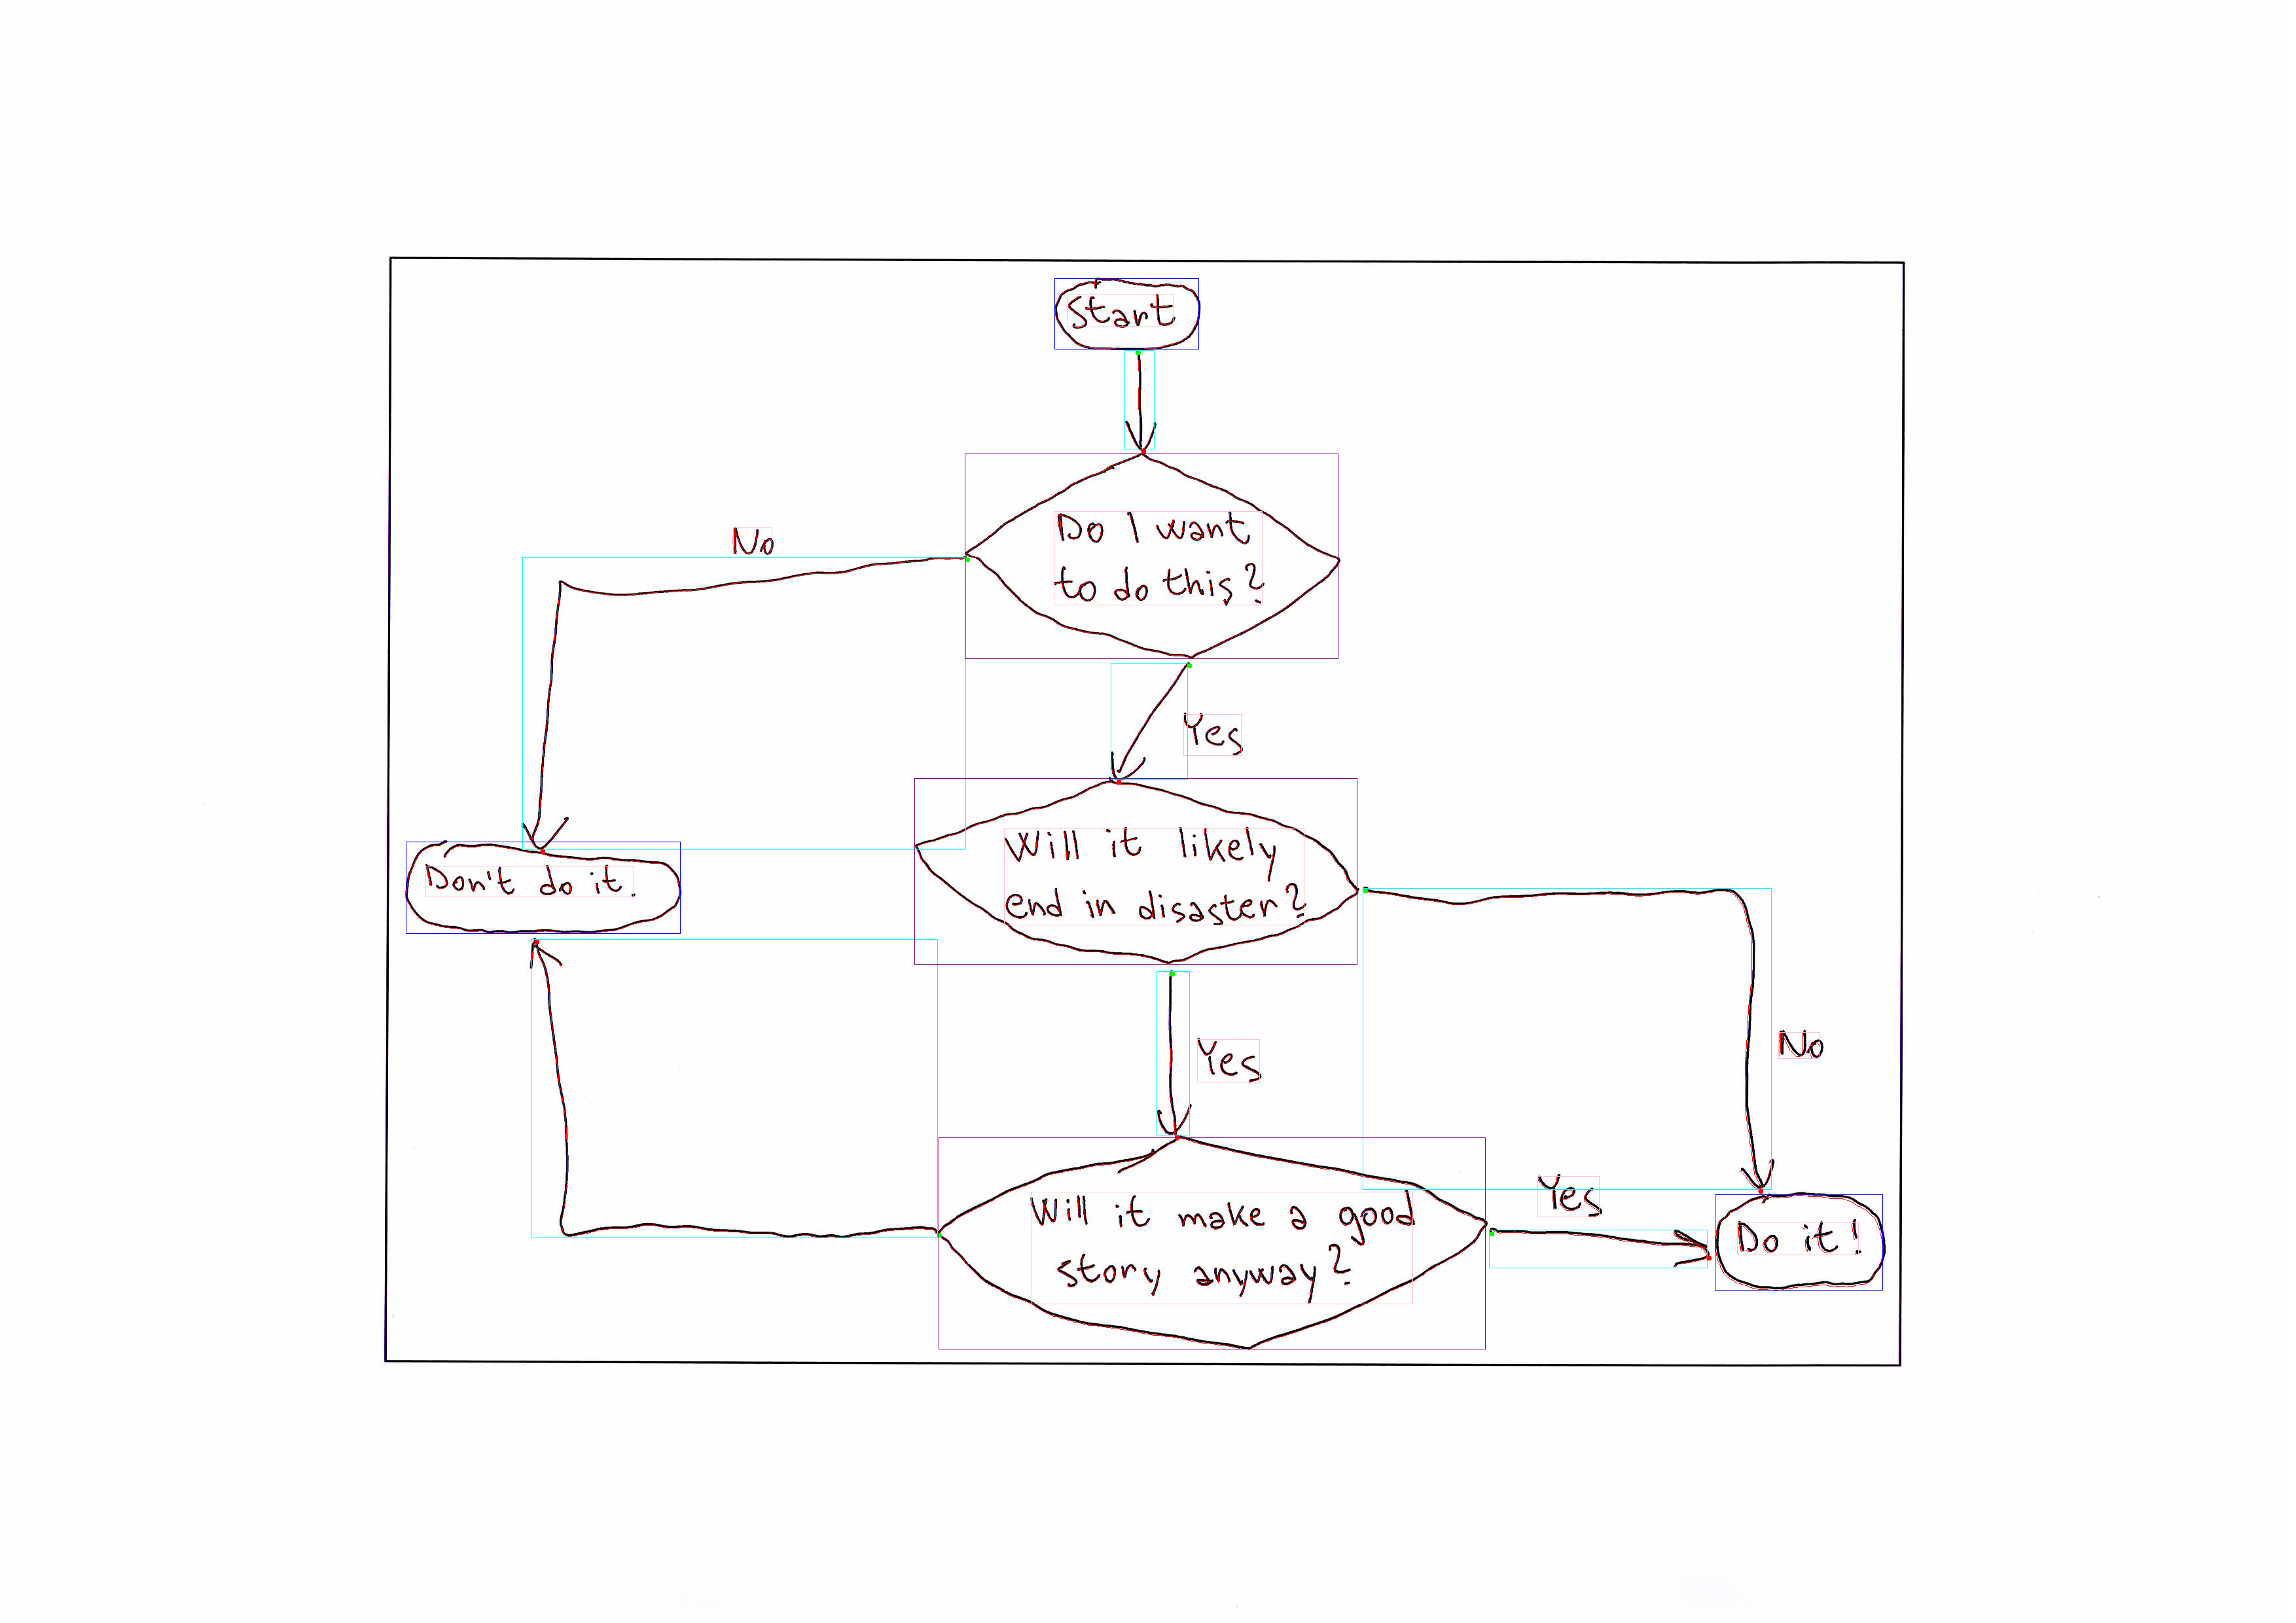 Start
Do I want
to do this?
No
Yes
Will it likely
end in disaster?
Don't do it.
Yes
No
Will it make a good
story anyway?
Yes
Do it!